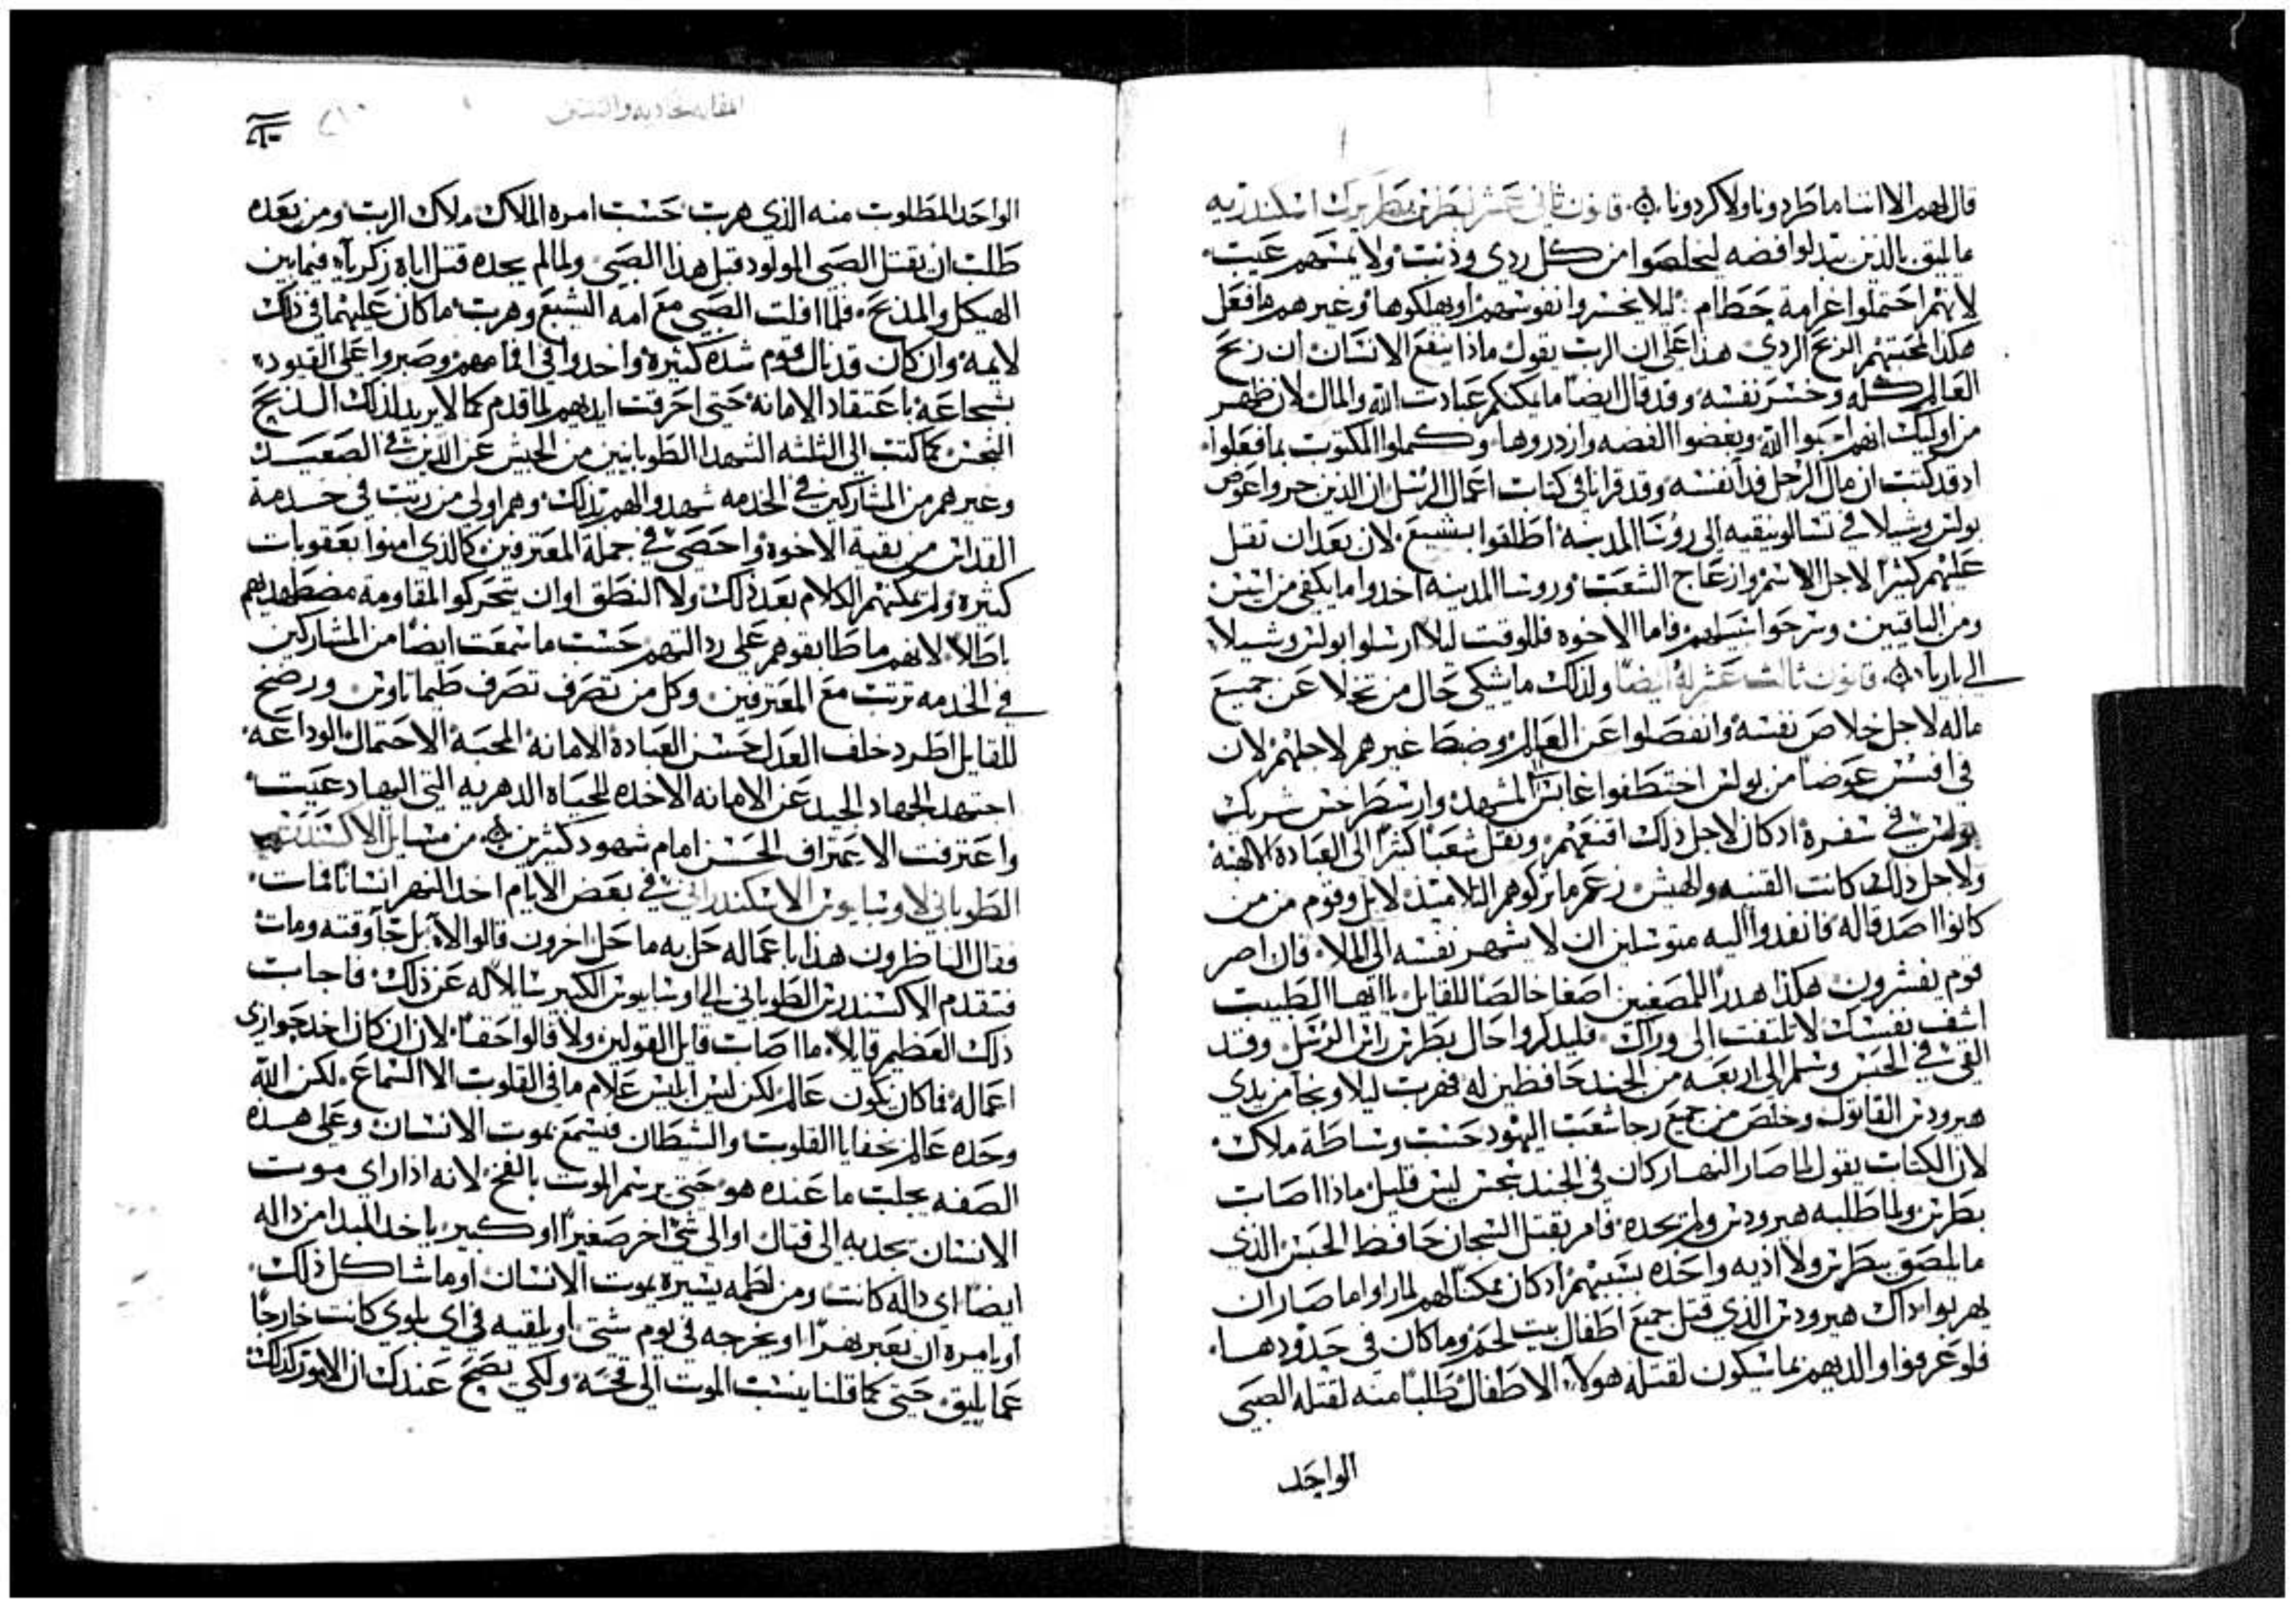 قال لهم الا اننا ما طردونا ولا كردونا ۞ قانون ثاني عشر لبطرس بطريرك اسكندريه
ما يليق بالذين يبدلوا فضه ليخلصوا من كل ردي وذنب ولا يمسهم عيب
لانهم احتملوا غرامة حطام ليلا يخسروا نفوسهم او يهلكوها وغيرهم ما فعل
هكذا لمحبتهم الربح الردي هذا على ان الرب يقول ماذا ينفع الانسان ان ربح
العالم كله وخسر نفسه وقد قال ايضا ما يمكنكم عبادت الله والمال لان ظهر
من اوليك انهم احبوا الله وبغضوا الفضه وازدروها وكملوا المكتوب بما فعلوا
اد قد كتب ان مال الرجل فدا نفسه وقد قرانا في كتاب اعمال الرسل ان الذين جروا عوض
بولس وشيلا في تسالونيقيه الى روسا المدينه اطلقوا بشبع لان بعد ان تقل
عليهم كثيرا لاجل الاسم وازعاج الشعب وروسا المدينه اخدوا ما يكفي من ايسن
ومن الباقيين وسرحوا سبيلهم فاما الاخوه فللوقت ليلا ارسلوا بولس وشيلا
الى باريا ۞ قانون ثالث عشر له ايضا ولذلك ما يشكي حال من تخلا عن جميع
ماله لاجل خلاص نفسه وانفصلوا عن العالم وضبط غيرهم لاجلهم لان
في افسس عوضا من بولس اختطفوا غايس المشهد وارسطرخس شريك
بولس في سفره ادكان لاجل ذلك اقنعهم ونقل شعبا كثيرا الى العبادة الالهية
ولاجل ذلك كانت الفتنه والهيش زعم ما تركوهم التلاميذ لابل وقوم من من
كانوا اصدقا له فانفدوا اليه متوسلين ان لا يشهر نفسه الى الملا فان اصر
قوم يفشرون هكذا هدرا للمصغين اصغا خالصا للقايل يا ايها الطبيب
اشف نفسك لا تلتفت الى وراك فليدكروا حال بطرس راس الرسل وقد
القي في الحبس وسلم الى اربعه من الجند حافظين له فهرب ليلا ونجا من يدي
هيرودس القاتول وخلص من جميع رجا شعب اليهود حسب وساطة ملاك
لان الكتاب يقول لما صار النهار كان في الجند سجس ليس قليل ماذا اصاب
بطرس ولما طلبه هيرودس ولم يجده فامر بقتل السجان حافظ الحبس الذي
ما يلصق ببطرس ولا اذيه واحده بسببهم ادكان ممكنا لهم لما راوا ما صار ان
يهربوا اداك هيرودس الذي قتل جميع اطفال بيت لحم وما كان في حدودها
فلو عرفوا والديهم بما سيكون لقتله هولاء الاطفال طلبا منه لقتله الصبي
الواحد
الواحد المطلوب منه الذي هرب حسب امره الملاك ملاك الرب ومن بعده
طلب ان يقتل الصبي المولود قبل هذا الصبي ولما لم يجده قتل اباه زكريا فيما بين
الهيكل والمذبح فلما افلت الصبي مع امه اليشبع وهرب ما كان عليهما في ذلك
لايمة وان كان قد نال قوم شده كثيرة واخدوا في افمامهم وصبروا على القيود
بشجاعه باعتقاد الامانه حتى احرقت ايديهم لما قدم كما لا يريد لذلك الدبح
النجس كما كتب الى الثلثه الشهدا الطوبانيين من الحبس عن الذين في الصعيد
وغيرهم من المشاركين في الخدمه شهدوا لهم بذلك وهم اولى من رتب في خدمة
القداس من بقية الاخوة واحصي في جملة المعترفين كالذي امنوا بعقوبات
كثيره ولم يمكنهم الكلام بعد ذلك ولا النطق او ان يتحركوا لمقاومة مضطهديهم
باطلا لانهم ما طابقوهم على رد التهم حسب ما سمعت ايضا من المشاركين
في الخدمه ترتب مع المعترفين وكل من تصرف تصرف طيماتاوس ورضخ
للقايل اطرد خلف العدل حسن العبادة الامانة المحبة الاحتمال الوداعه
اجتهد الجهاد الجيد عن الامانه الاخده للحياه الدهريه التي اليها دعيت
واعترفت الاعتراف الحسن امام شهود كثيرين ۞ من مسايل الاكسندرس
الطوباني لاوسابيوس الاسكندراني في بعض الايام اخد النهر انسانا فمات
فقال الناظرون هذا باعماله حل به ما حل اخرون قالوا لا بل جا وقته ومات
فتقدم الاكسندرس الطوباني الى اوسابيوس الكبير سالا له عن ذلك فاجاب
ذلك العظيم قايلا ما اصاب قايل القولين ولا قالوا حقا لان ان كان احد جوازي
اعماله فما كان يكون عالم لكن ليس ابليس علام ما في القلوب الا السماع لكن الله
وحده عالم بخفايا القلوب والشيطان فيسمع بموت الانسان وعلى هده
الصفه يجلب ما عنده هو حتى يرسم الموت بالفخ لانه ادا راي موت
الانسان يجدبه الى قتال او الى شي اخر صغيرا او كبير ياخد المبدا من داله
ايضا اي داله كانت ومن لطمه يسيره يموت الانسان او ما شاكل ذلك
او يامره ان يعبر نهرا او يخرجه في يوم شتي او يلقيه في اي بلوي كانت خارجا
عما يليق حتى كما قلنا ينسب الموت الى فخه ولكي يصح عندك ان الامور كذلك